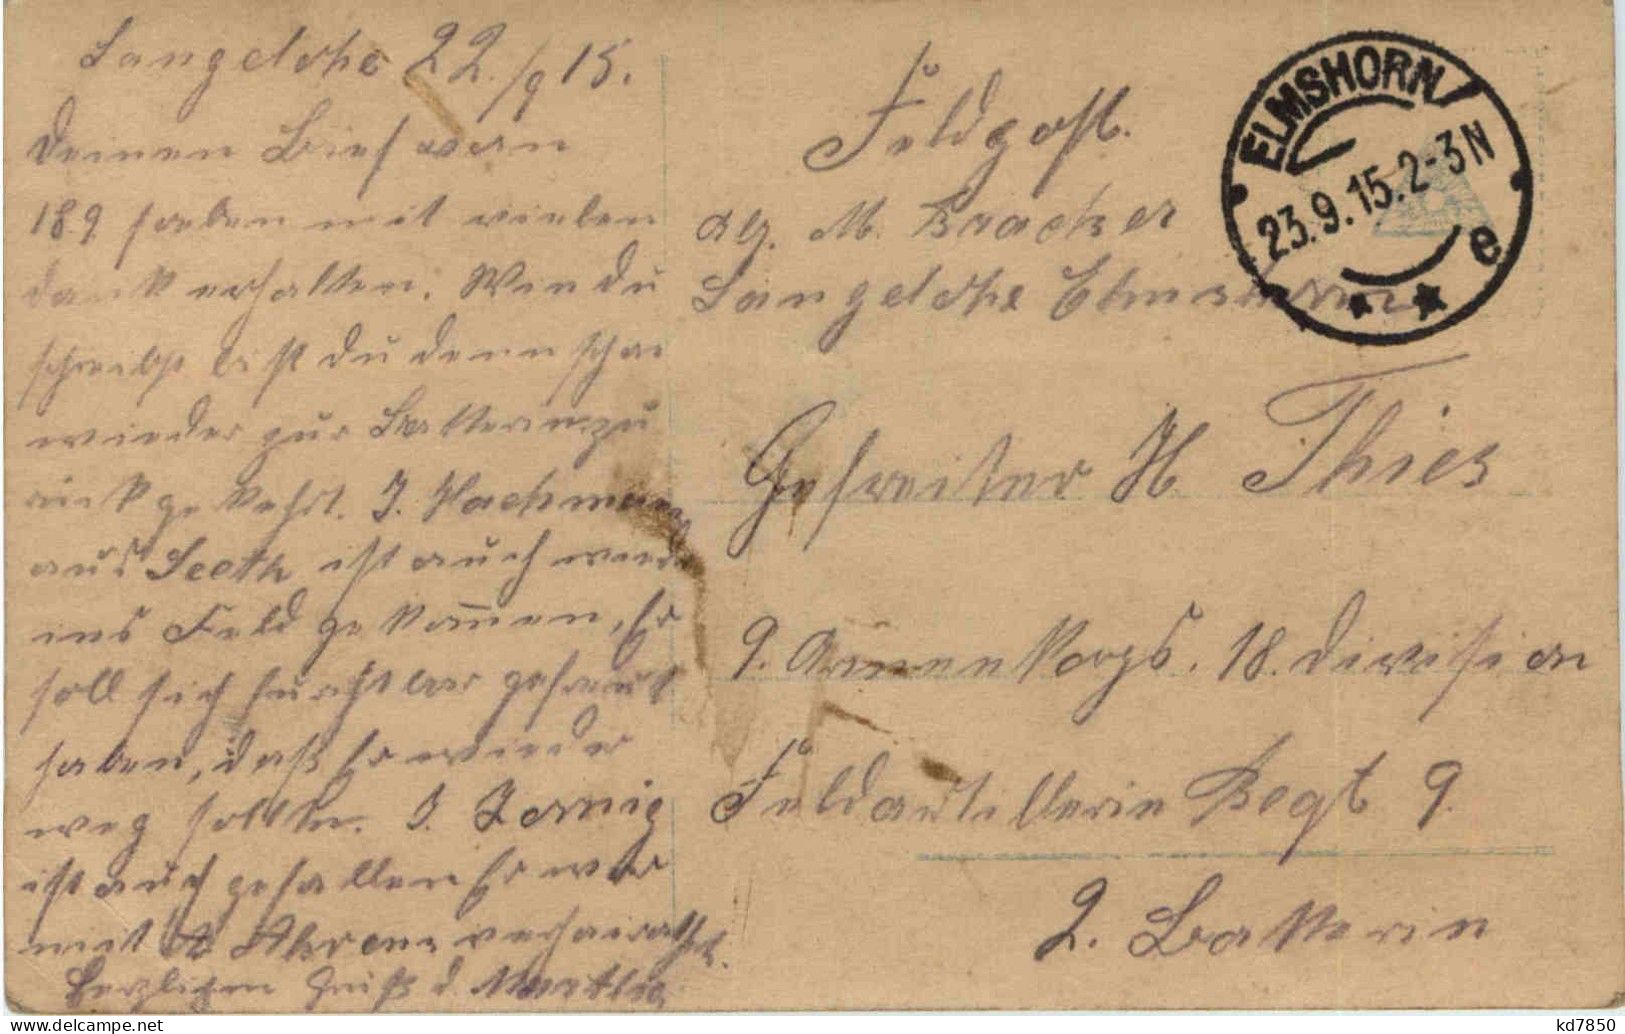 Langelohe 22./9 15.
Deinen Brief vom
18.9 haben mit vielen
dank erhalten. Wie du
schreibst bist du denn schon
wieder zur Batterie zu
rück gekehrt. J. Hachmann
aus Seeth ist auch wieder
ins Feld gekom̄en, Er
soll sich furchtbar gefreut
haben, daß Er wieder
weg sollte. J.
ist auch gefallen Er war
mit A. Ahrens verheirathet.
Herzlichen Gruß d.
Feldpost.
Abs. M. Bracker
Langelohe Elmshorn
ELMSHORN
23.9.15.2-3N
e
Gefreiter H Thies
9. Armeenkorps. 18. Division
Feldartillerie Regt 9.
2. Batterie
kd7850